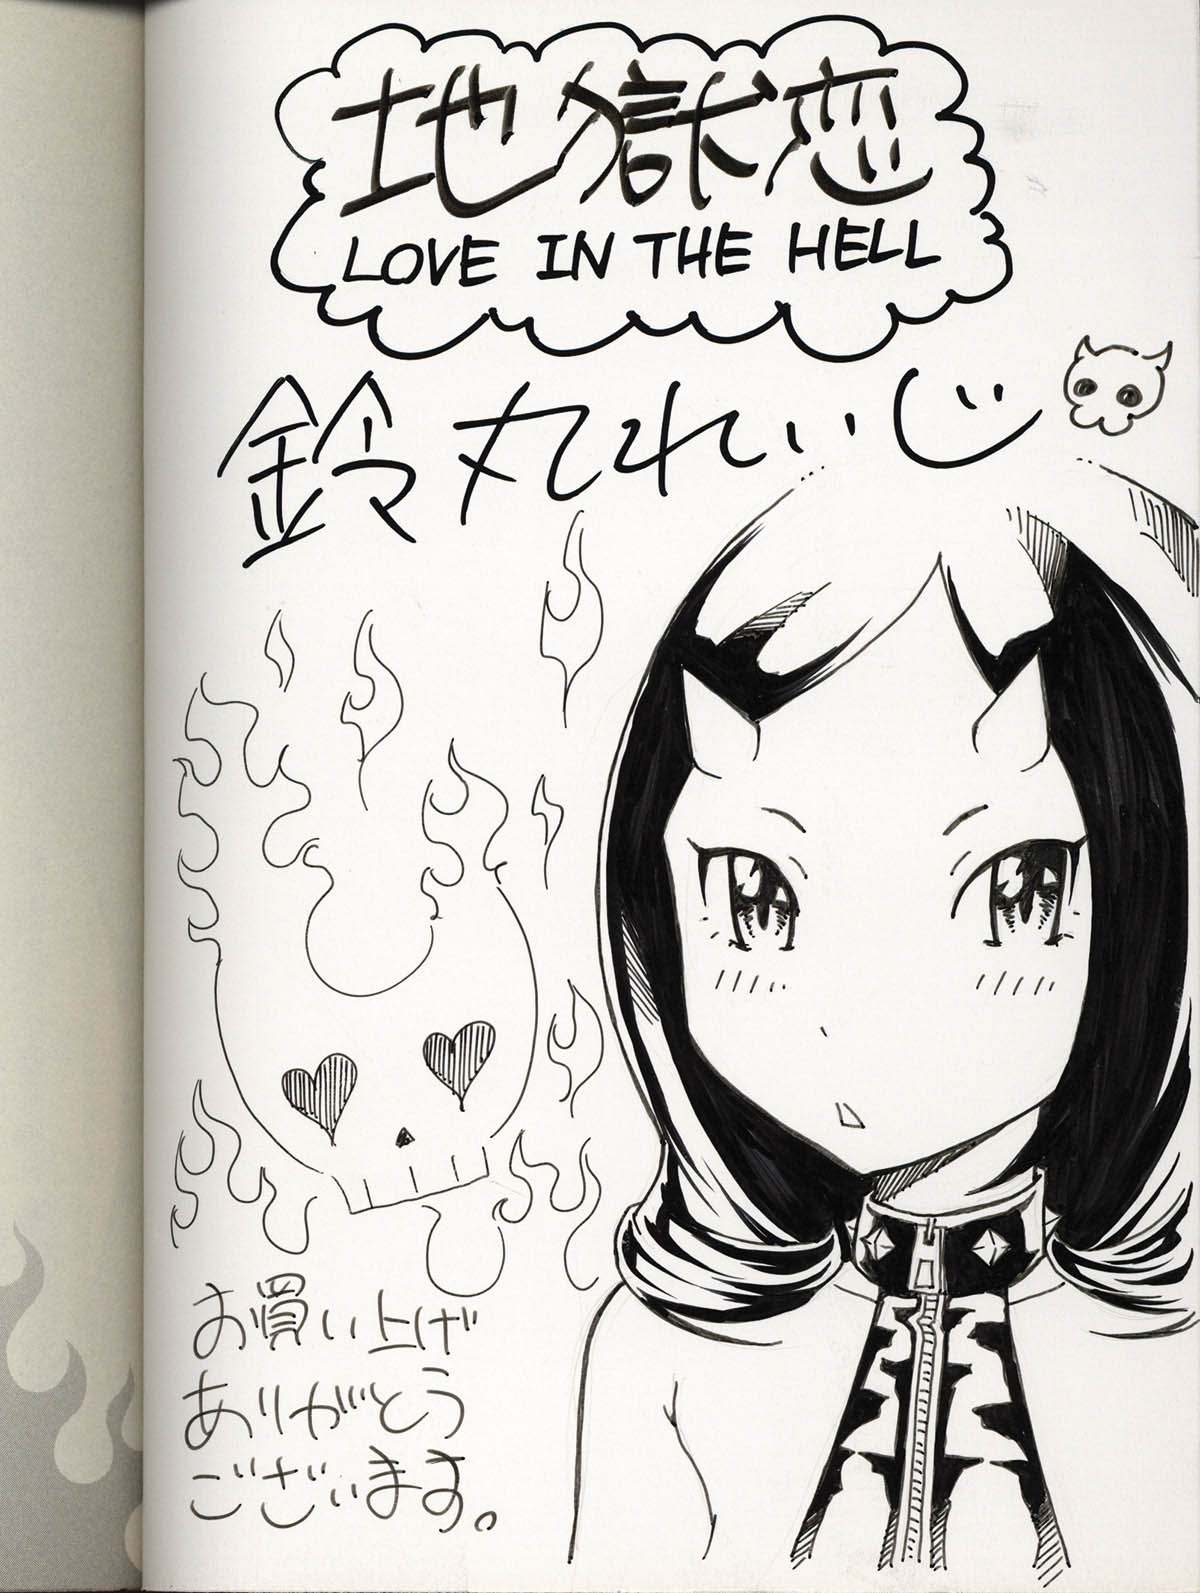 地獄恋
LOVE IN THE HELL
鈴丸れいじ
お買い上げ
ありがとう
ございます。